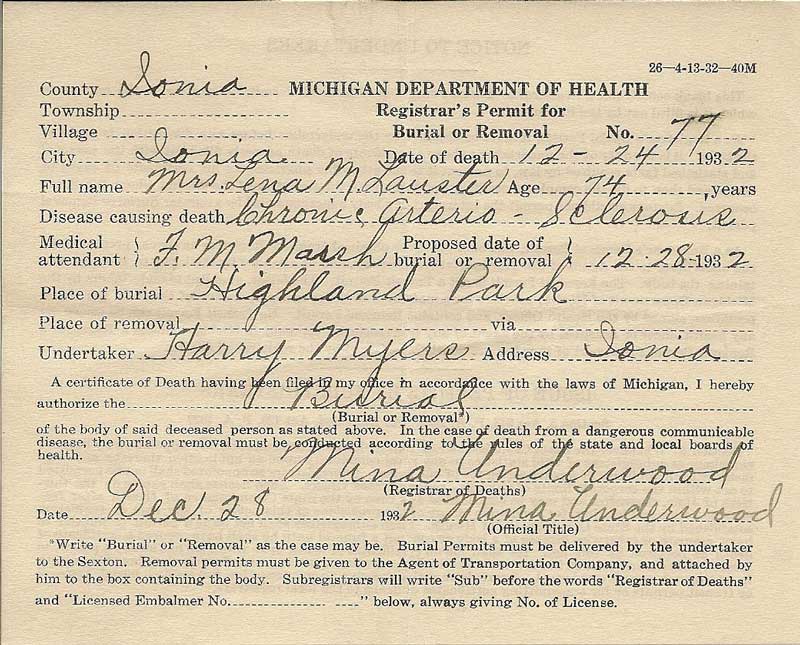 26—4-13-32—40M
County Ionia MICHIGAN DEPARTMENT OF HEALTH
Township Registrar's Permit for
Village Burial or Removal No. 77
City Ionia Date of death 12 - 24 1932
Full name Mrs. Lena M. Lauster Age 74 years
Disease causing death Chronic Arterio - Sclerosis
Medical attendant } F. M. Marsh Proposed date of burial or removal } 12-28-1932
Place of burial Highland Park
Place of removal via
Undertaker Harry Myers Address Ionia
A certificate of Death having been filed in my office in accordance with the laws of Michigan, I hereby
authorize the Burial
(Burial or Removal*)
of the body of said deceased person as stated above. In the case of death from a dangerous communicable
disease, the burial or removal must be conducted according to the rules of the state and local boards of
health.
Mina Underwood
(Registrar of Deaths)
Date Dec. 28 1932 Mina Underwood
(Official Title)
*Write "Burial" or "Removal" as the case may be. Burial Permits must be delivered by the undertaker
to the Sexton. Removal permits must be given to the Agent of Transportation Company, and attached by
him to the box containing the body. Subregistrars will write "Sub" before the words "Registrar of Deaths"
and "Licensed Embalmer No. " below, always giving No. of License.